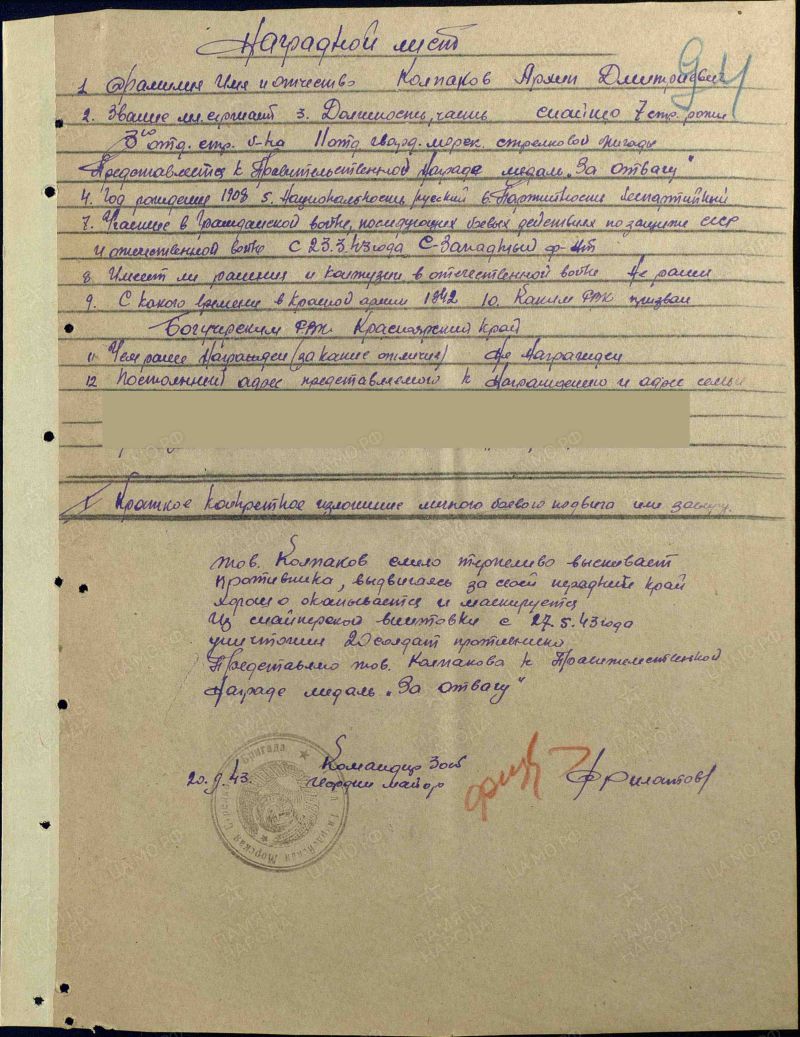 Наградной лист
1. Фамилия Имя и отчество Колпаков Дмитриевич
2. Звание мл. сержант 3. Должность, часть снайпер 7 стр. роты
3го отд. стр. б-на 11 отд. гвард. морск. стрелковой бригады
Представляется к Правительственной Награде медаль „За отвагу“
4. Год рождения 1908 5. Национальность русский 6. Партийность беспартийный
7. Участие в Гражданской войне, последующих боевых действиях по защите СССР
и отечественной войне с 23.3.43 года С-Западный ф-нт
8. Имеет ли ранения и контузии в отечественной войне Не ранен
9. С какого времени в Красной армии 1942 10. Каким РВК призван
Богучарским РВК. Красноярский край
11. Чем ранее Награжден (за какие отличия) Не Награжден
12 Постоянный адрес представляемого к Награждению и адрес семьи
I Краткое Конкретное изложение личного боевого подвига или заслуг.
тов. Колпаков смело терпеливо выскивает
противника, выдвигаясь за свой передний край
хорошо окапывается и маскируется
Из снайперской винтовки с 27.5.43 года
уничтожил 20 солдат противника
Представляю тов. Колпакова к Правительственной
Награде медаль „За отвагу“
Командир 3 осб
20.9.43. гвардии майор Филатов
Морская бригада
ПАМЯТЬ НАРОДА
ЦАМО.РФ